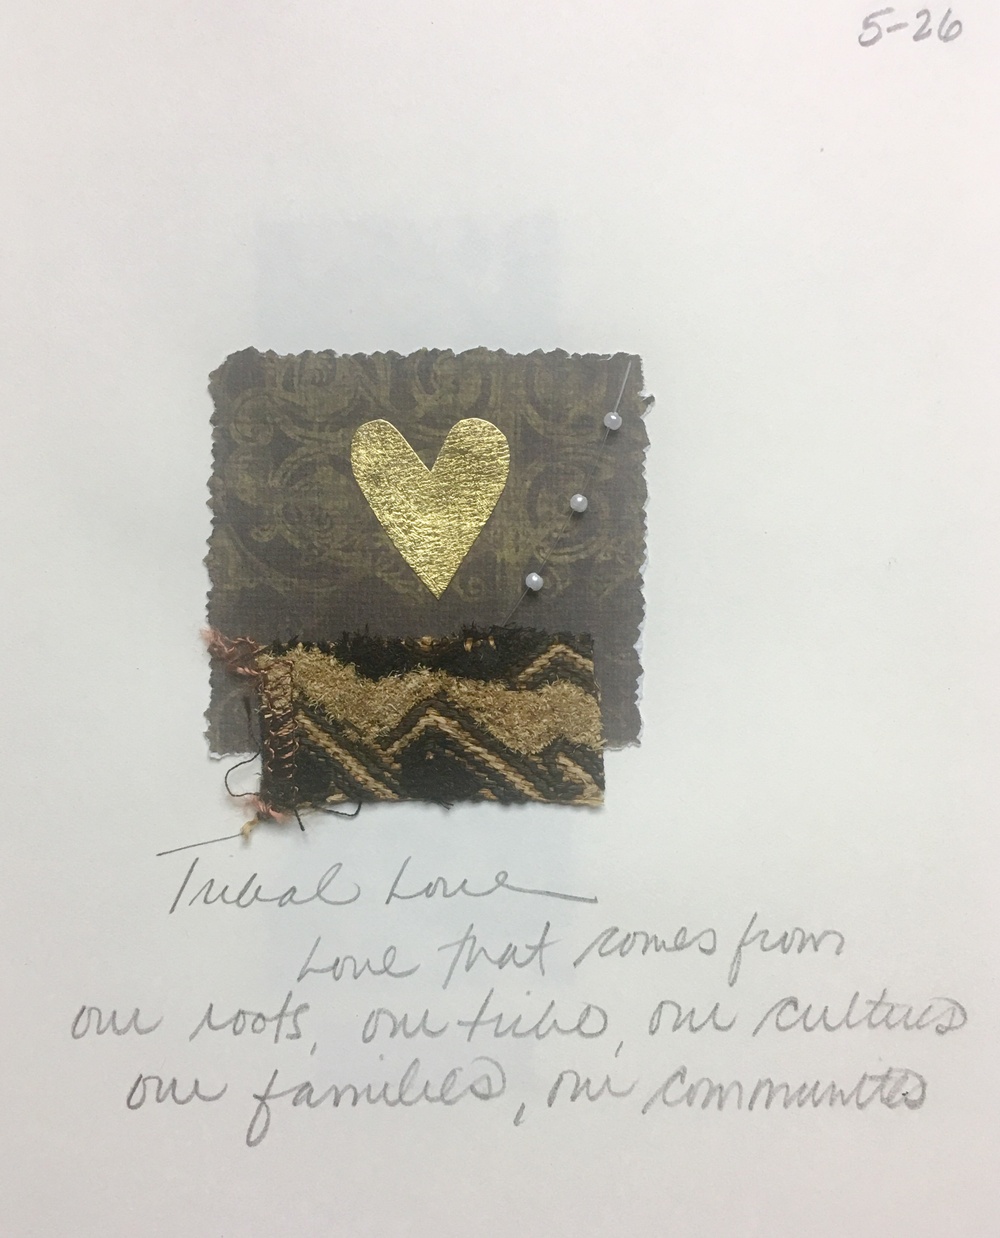 5-26
Tribal Love
Love that comes from
our roots, our tribe, our cultures
our families, our communities